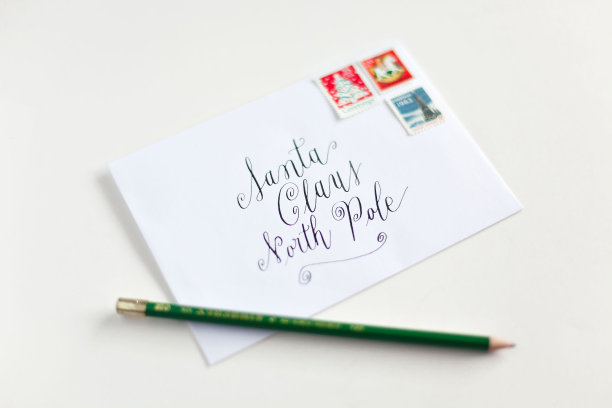 Santa
Claus
North Pole